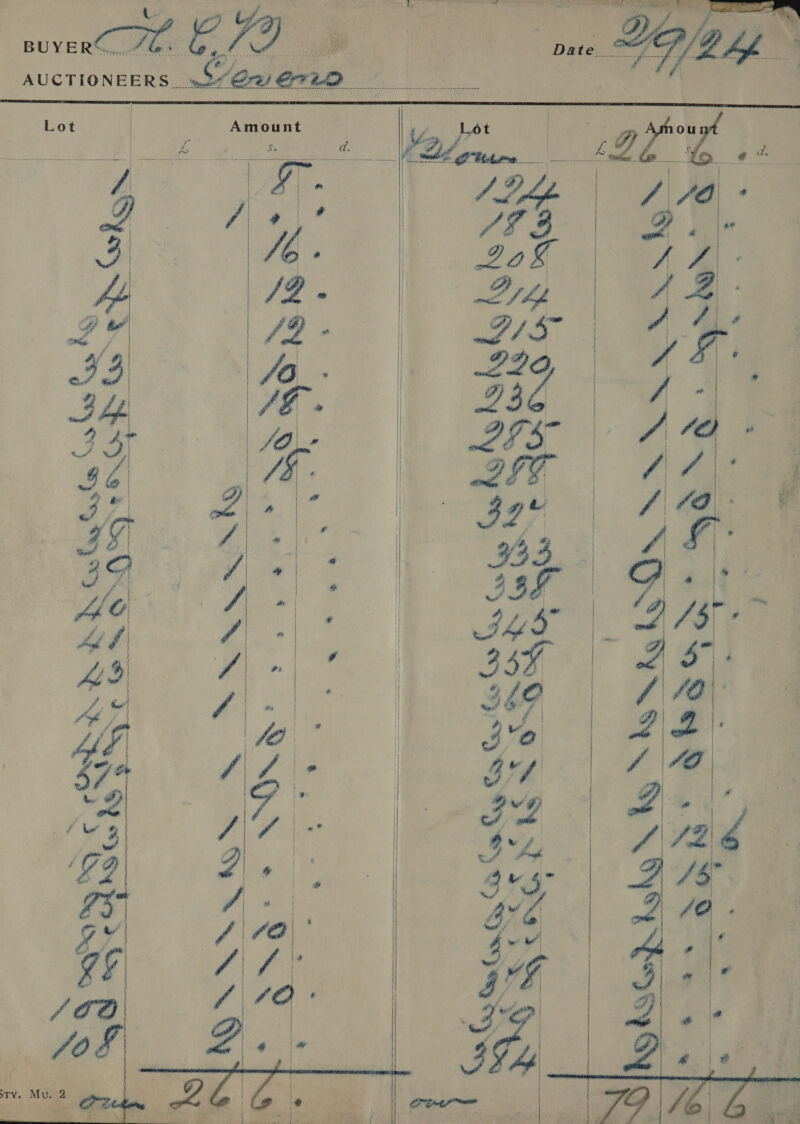 BUYER H. C. B Date 2/9/24
AUCTIONEERS Stevens
Lot Amount Lot Amount
£ s. d. £ s. d.
Bt. over 26 6 .
1 8 .
2 1 . .
3 16 .
4 12 .
27 12 .
33 10 .
34 18 .
35 10 .
36 18 .
37 2 . .
38 1 . .
39 1 . .
40 1 . .
41 1 . .
43 1 . .
47 1 . .
48 10 .
57a 1 1 .
72 9 .
73 1 1 .
82 2 . .
85 1 . .
87 1 10 .
88 1 1 .
100 1 10 .
108 2 . .
over 26 6 .
124 1 10 .
183 2 . .
208 1 1 .
214 1 2 .
215 1 1 .
220 1 8 .
236 1 . .
285 1 10 .
288 1 1 .
327 1 10 .
333 1 8 .
338 9 . .
345 2 15 .
358 2 5 .
369 1 10 .
370 2 2 .
371 1 10 .
372 2 . .
374 1 12 6
375 2 15
376 2 10 .
377 4 . .
378 3 . .
379 2 . .
384 2 . .
over 79 16 6
STY. MU. 2